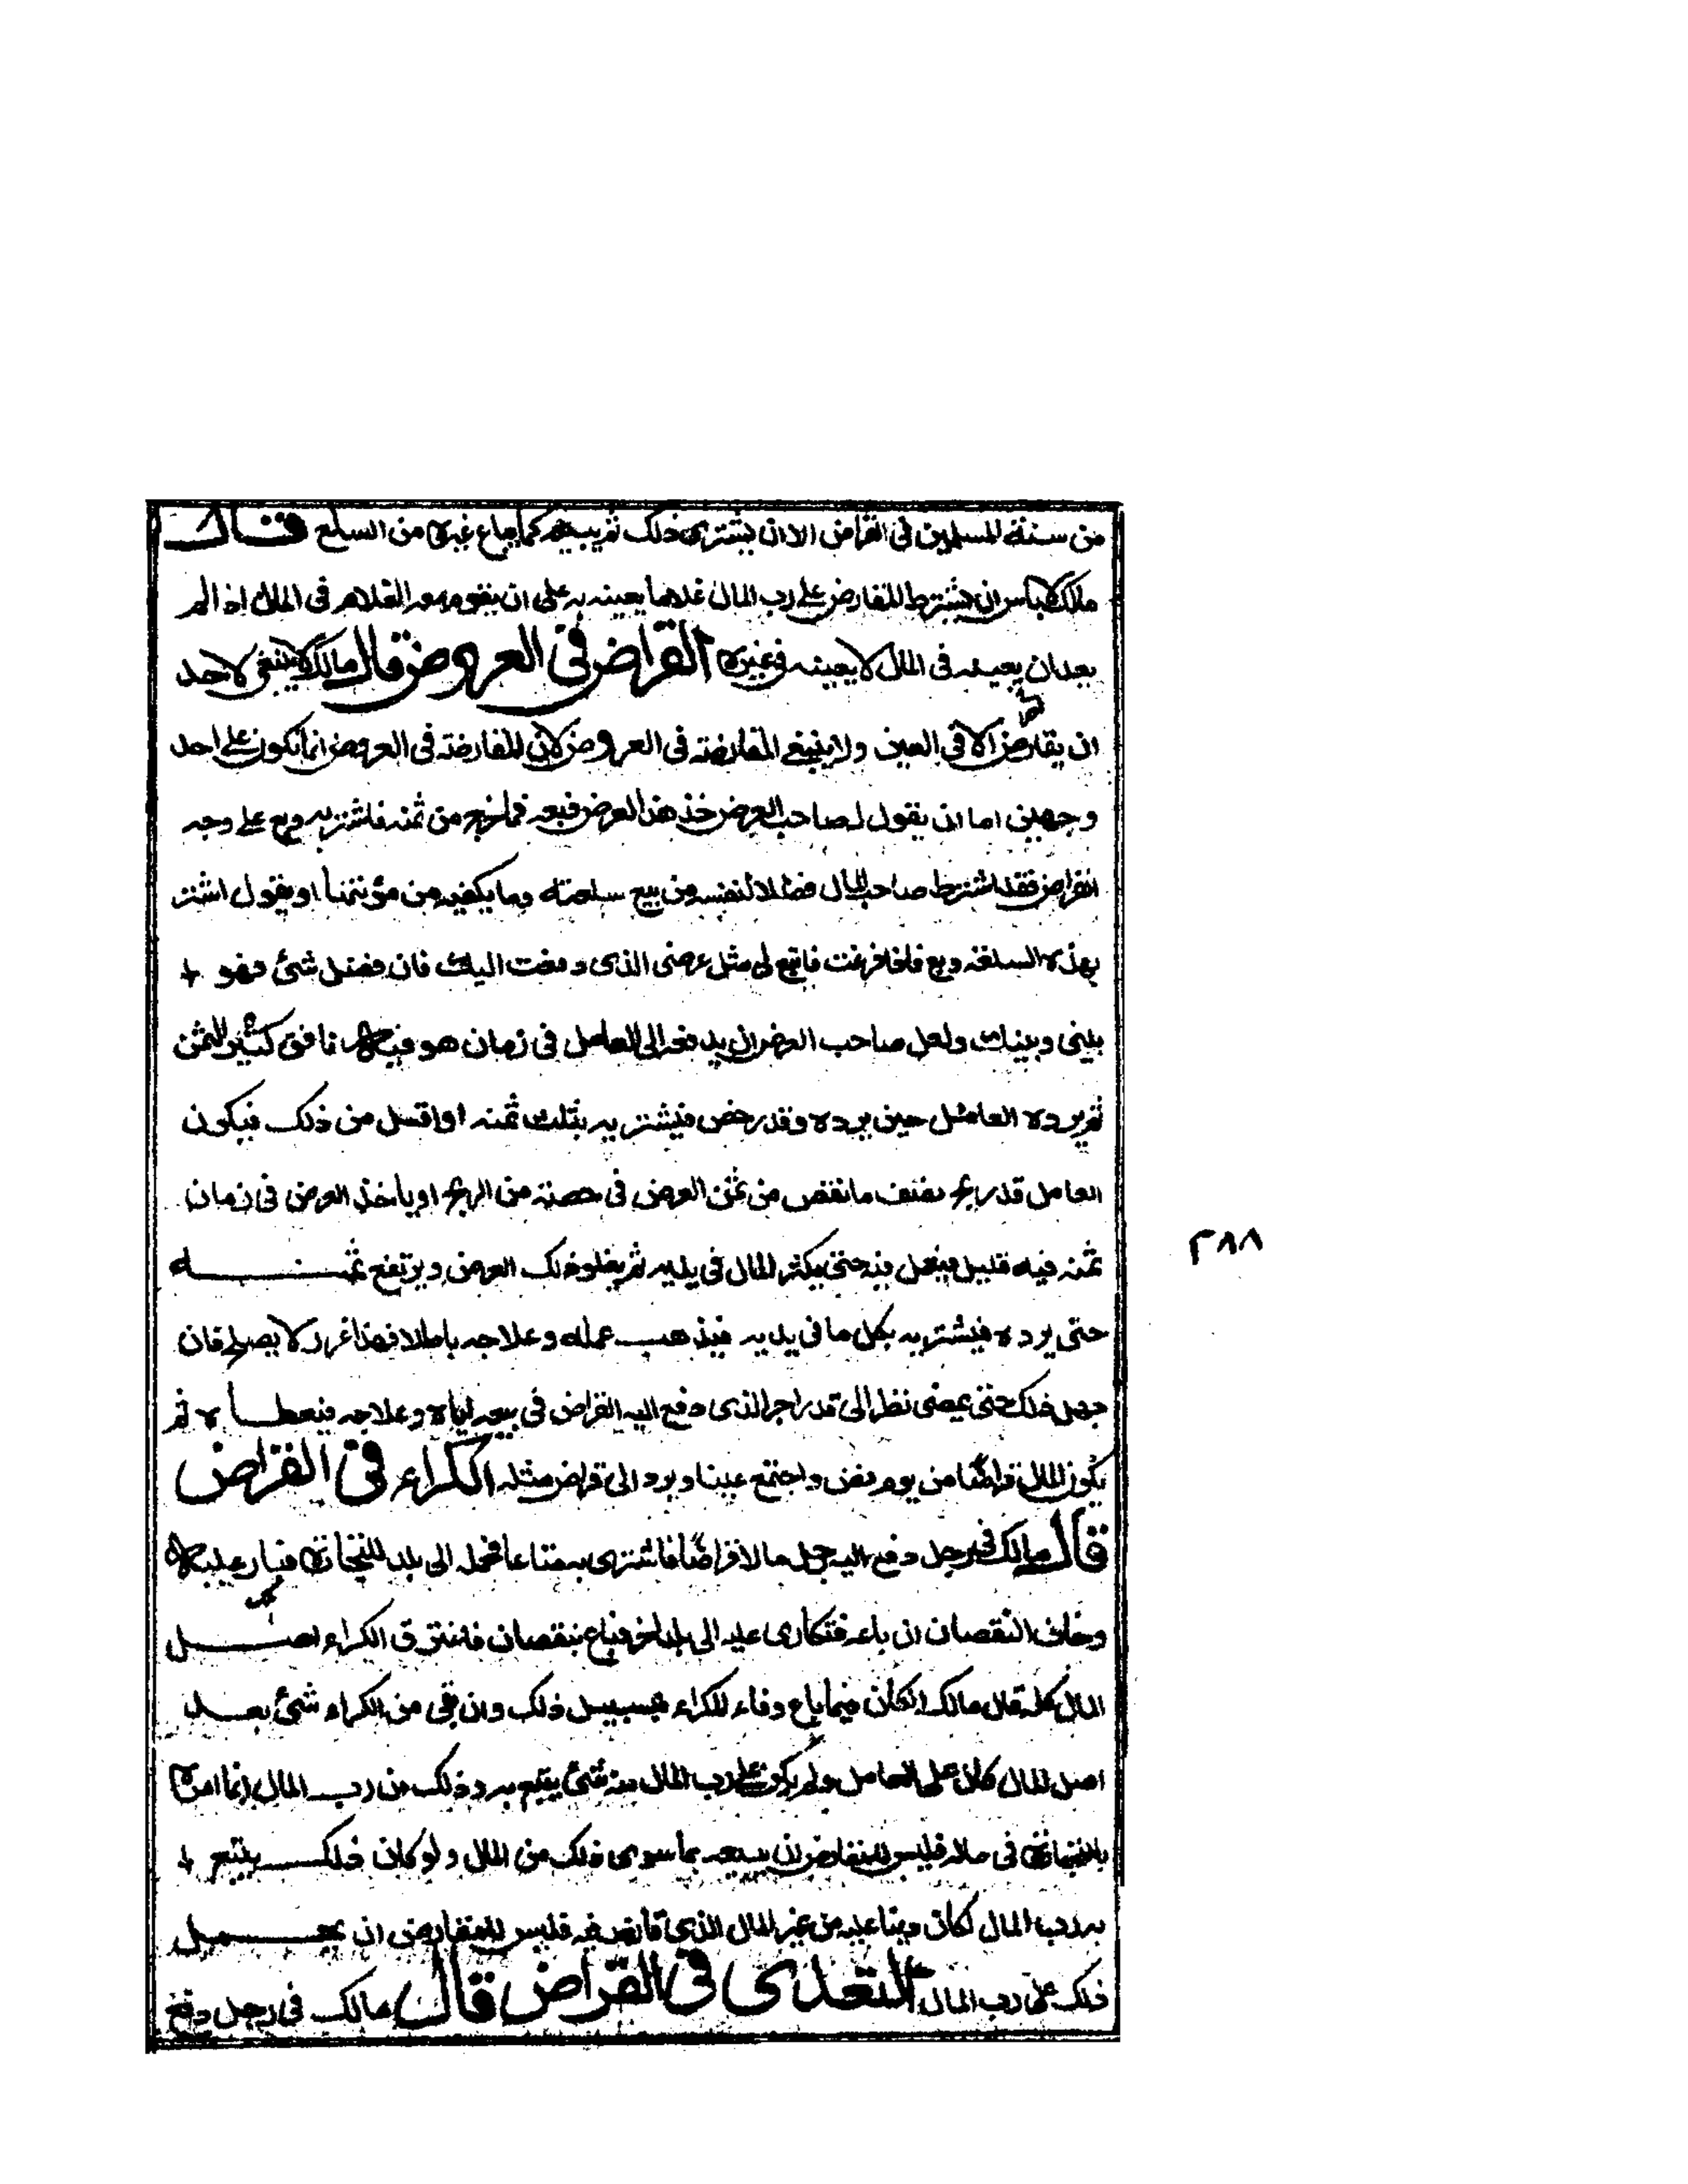 من سنة المسلمين في القراض الا ان يشترى ذلك ثم يبيعه كما يباع غيره من السلع قال
مالك لا باس ان يشترط المقارض على رب المال غلاما يعينه به على ان يقوم معه الغلام في المال اذا لم
يعدان يعينه في المال لا يعينه في غيره القراض في العروض قال مالك لا ينبغي لاحد
ان يقارض الا في العين ولا ينبغي المقارضة في العروض لان المقارضة في العروض انما تكون على احد
وجهين اما ان يقول له صاحب العرض خذ هذا العرض فبعه فما خرج من ثمنه فاشتر به وبع على وجه
القراض فقد اشترط صاحب المال فضلا لنفسه من بيع سلعته وما يكفيه من مؤنتها او يقول اشتر
بهذه السلعة وبع فاذا فرغت فابتع لي مثل عرضي الذي دفعت اليك فان فضل شئ فهو
بيني وبينك ولعل صاحب العرض ان يدفعه الى العامل في زمان هو فيه نافق كثير الثمن
ثم يرده العامل حين يرده وقد رخص فيشتريه بثلث ثمنه او اقل من ذلك فيكون
العامل قد ربح نصف ما نقص من ثمن العرض في حصته من الربح او ياخذ العرض في زمان
ثمنه فيه قليل فيعمل فيه حتى يكثر المال في يديه ثم يغلو ذلك العرض ويرتفع ثمنه
حتى يرده فيشتريه بكل ما في يديه فيذهب عمله وعلاجه باطلا فهذا غرر لا يصلح فان
جهل ذلك حتى يمضى نظر الى قدر اجر الذي دفع اليه القراض في بيعه اياه وعلاجه فيعطاه ثم
يكون المال قراضا من يوم نض واجتمع عينا ويرد الى قراض مثله الكراء في القراض
قال مالك في رجل دفع اليه رجل مالا قراضا فاشترى به متاعا فحمله الى بلد للتجارة فبار عليه
وخاف النقصان ان باعه فتكارى عليه الى بلد اخر فباع بنقصان فاغترق الكراء اصل
المال كله قال مالك ان كان فيما باع وفاء للكراء فسبيل ذلك وان بقي من الكراء شئ بعد
اصل المال كان على العامل ولم يكن على رب المال منه شئ يتبع به وذلك ان رب المال انما امره
بالتجارة في ماله فليس للمقارض ان يتبعه بما سوى ذلك من المال ولو كان ذلك يتبع
به رب المال لكان دينا عليه من غير المال الذي قارضه فيه فليس للمقارض ان يحمل
ذلك على رب المال التعدى في القراض قال مالك في رجل دفع
٢٨٨